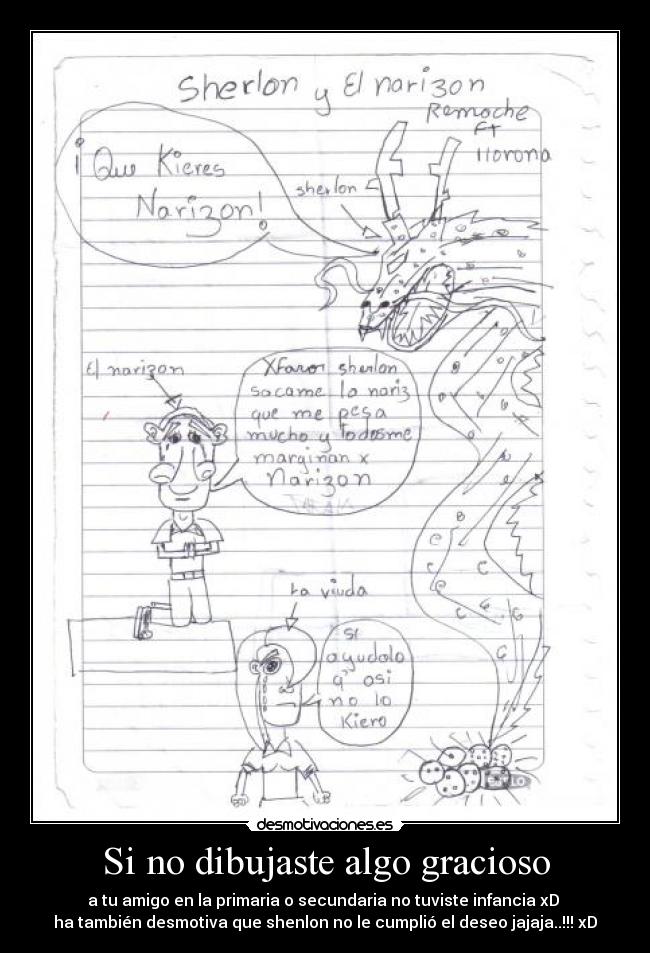 Sherlon y El narizon
Remoche
Ft
llorona
¡Que Kieres
Narizon!
sherlon
El narizon
XFavor sherlon
sacame la nariz
que me pesa
mucho y todosme
marginan x
Narizon
La viuda
Si
ayudalo
q' asi
no lo
Kiero
desmotivaciones.es
Si no dibujaste algo gracioso
a tu amigo en la primaria o secundaria no tuviste infancia xD
ha también desmotiva que shenlon no le cumplió el deseo jajaja..!!! xD